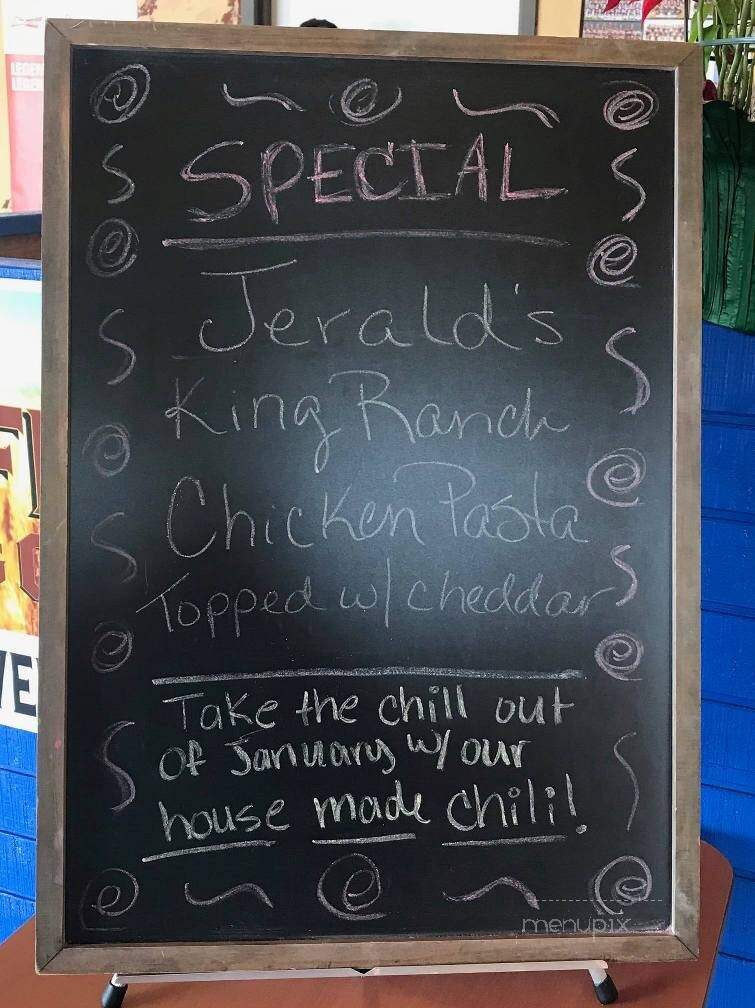 SPECIAL
Jerald's
King Ranch
Chicken Pasta
Topped w/ cheddar
Take the chill out
of January w/ our
house made chili!
menupix